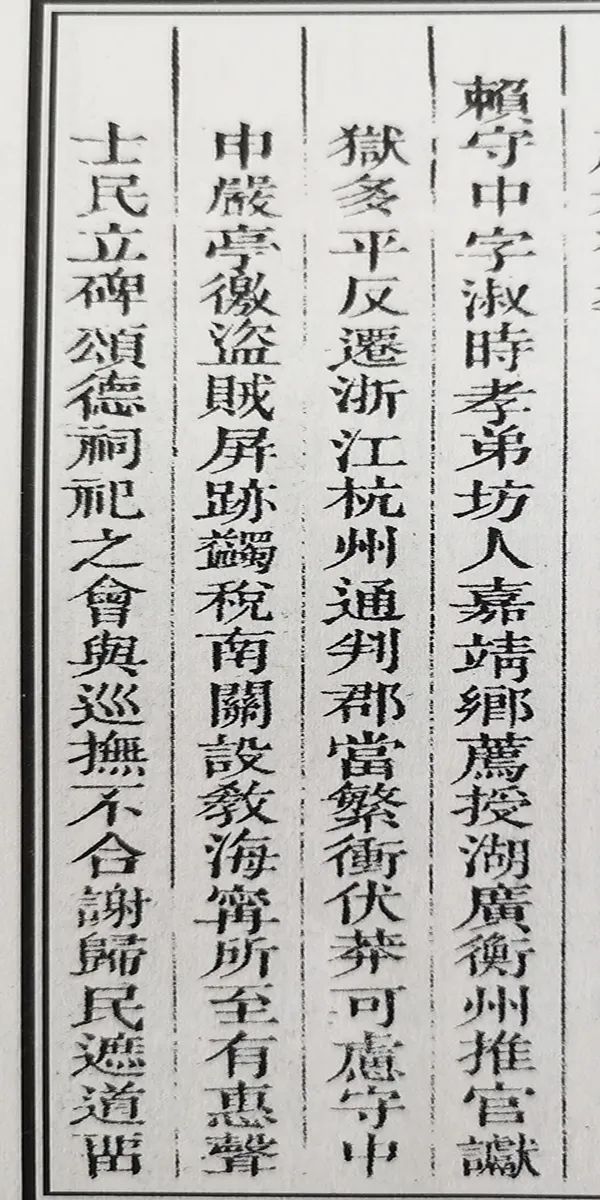 賴守中字淑時孝弟坊人嘉靖鄉薦授湖廣衡州推官讞
獄多平反遷浙江杭州通判郡當繁衝伏莽可慮守中
申嚴亭徼盜賊屏跡蠲稅南關設教海寧所至有惠聲
士民立碑頌德祠祀之會與巡撫不合謝歸民遮道畱